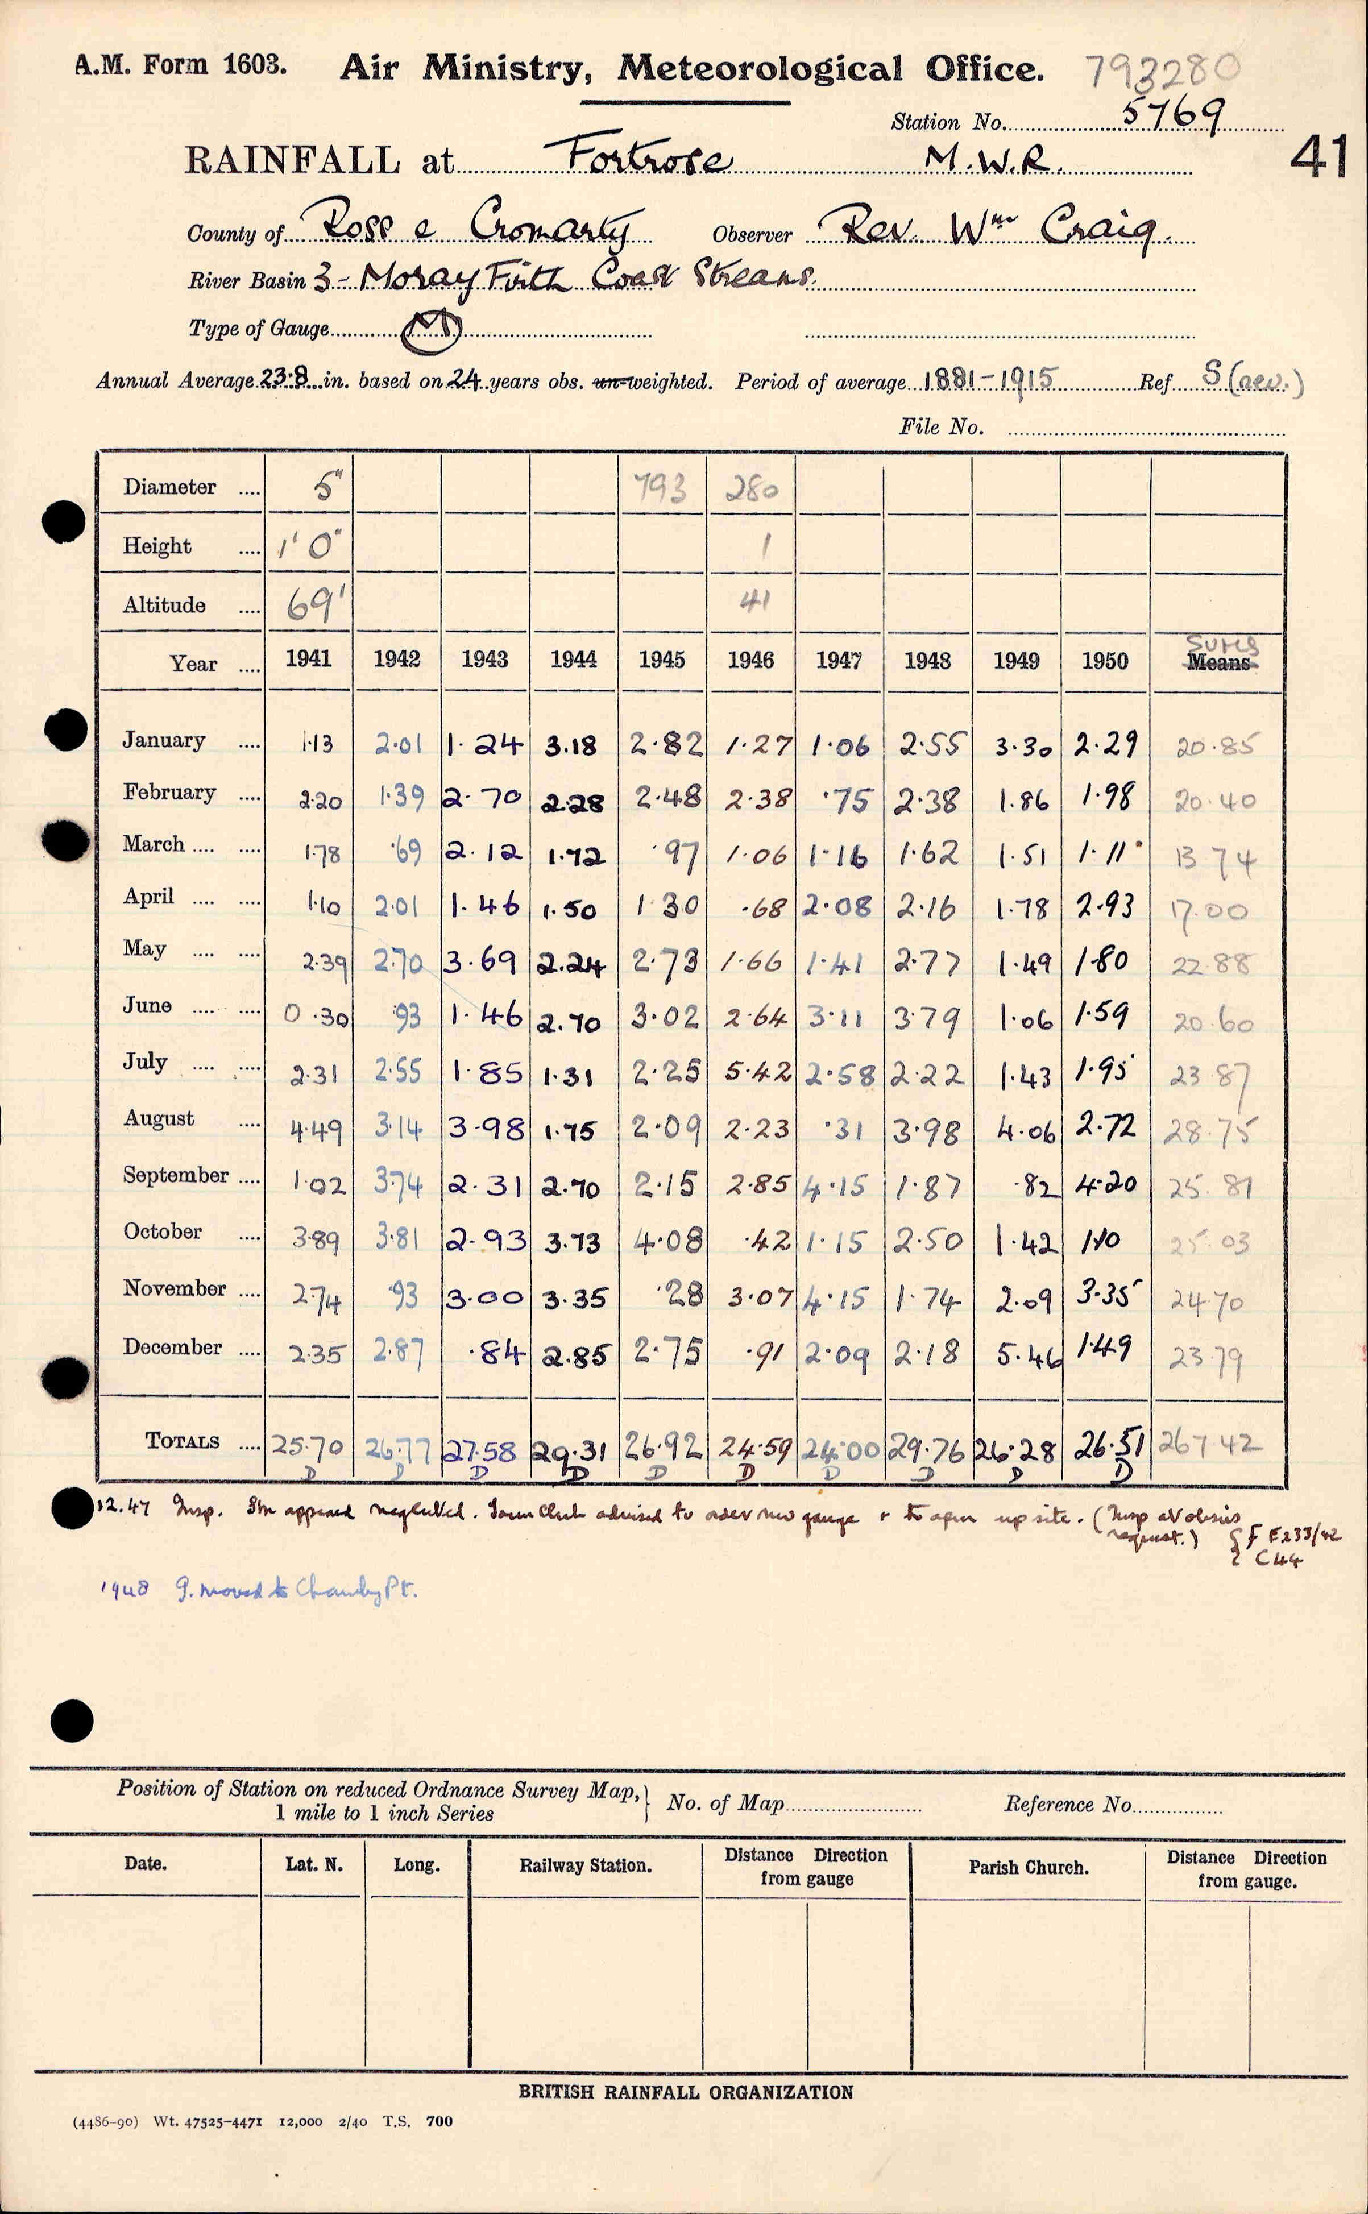 A.M. Form 1603. Air Ministry, Meteorological Office. 793280
Station No. 5769
41
RAINFALL at Fortrose M.W.R.
County of Ross & Cromarty Observer Rev. Wm Craig.
River Basin 3 - Moray Firth Coast Streams.
Type of Gauge M
Annual Average 23.8 in. based on 24 years obs. un-weighted. Period of average 1881-1915 Ref S (rev.)
File No.
Diameter .... 5" 793 280
Height .... 1' 0" 1
Altitude .... 69' 41
Sums
Year .... 1941 1942 1943 1944 1945 1946 1947 1948 1949 1950 Means
January .... 1.13 2.01 1.24 3.18 2.82 1.27 1.06 2.55 3.30 2.29 20.85
February .... 2.20 1.39 2.70 2.28 2.48 2.38 .75 2.38 1.86 1.98 20.40
March .... .... 1.78 .69 2.12 1.72 .97 1.06 1.16 1.62 1.51 1.11 13 74
April .... .... 1.10 2.01 1.46 1.50 1 30 .68 2.08 2.16 1.78 2.93 17.00
May .... .... 2.39 2.70 3.69 2.24 2.73 1.66 1.41 2.77 1.49 1.80 22.88
June .... .... 0.30 .93 1.46 2.70 3.02 2.64 3.11 3.79 1.06 1.59 20.60
July .... .... 2.31 2.55 1.85 1.31 2.25 5.42 2.58 2.22 1.43 1.95 23 87
August .... 4.49 3.14 3.98 1.75 2.09 2.23 .31 3.98 4.06 2.72 28.75
September .... 1.02 3.74 2.31 2.70 2.15 2.85 4.15 1.87 .82 4.20 25.81
October .... 3.89 3.81 2.93 3.73 4.08 .42 1.15 2.50 1.42 1.10 25.03
November .... 2.74 .93 3.00 3.35 .28 3.07 4.15 1.74 2.09 3.35 24.70
December .... 2.35 2.87 .84 2.85 2.75 .91 2.09 2.18 5.46 1.49 23.79
TOTALS .... 25.70 26.77 27.58 29.31 26.92 24.59 24.00 29.76 26.28 26.51 267.42
D D D D D D D D D D
12.47 Insp. Stn appeared neglected. Town Clerk advised to order new gauge & to open up site. (Insp at obsrs
request.) F E233/42
C44
1948 G. moved to Chanonry Pt.
Position of Station on reduced Ordnance Survey Map, } No. of Map Reference No.
1 mile to 1 inch Series
Date. Lat. N. Long. Railway Station. Distance from gauge Direction Parish Church. Distance from gauge. Direction
BRITISH RAINFALL ORGANIZATION
(4486-90) Wt. 47525-4471 12,000 2/40 T.S. 700